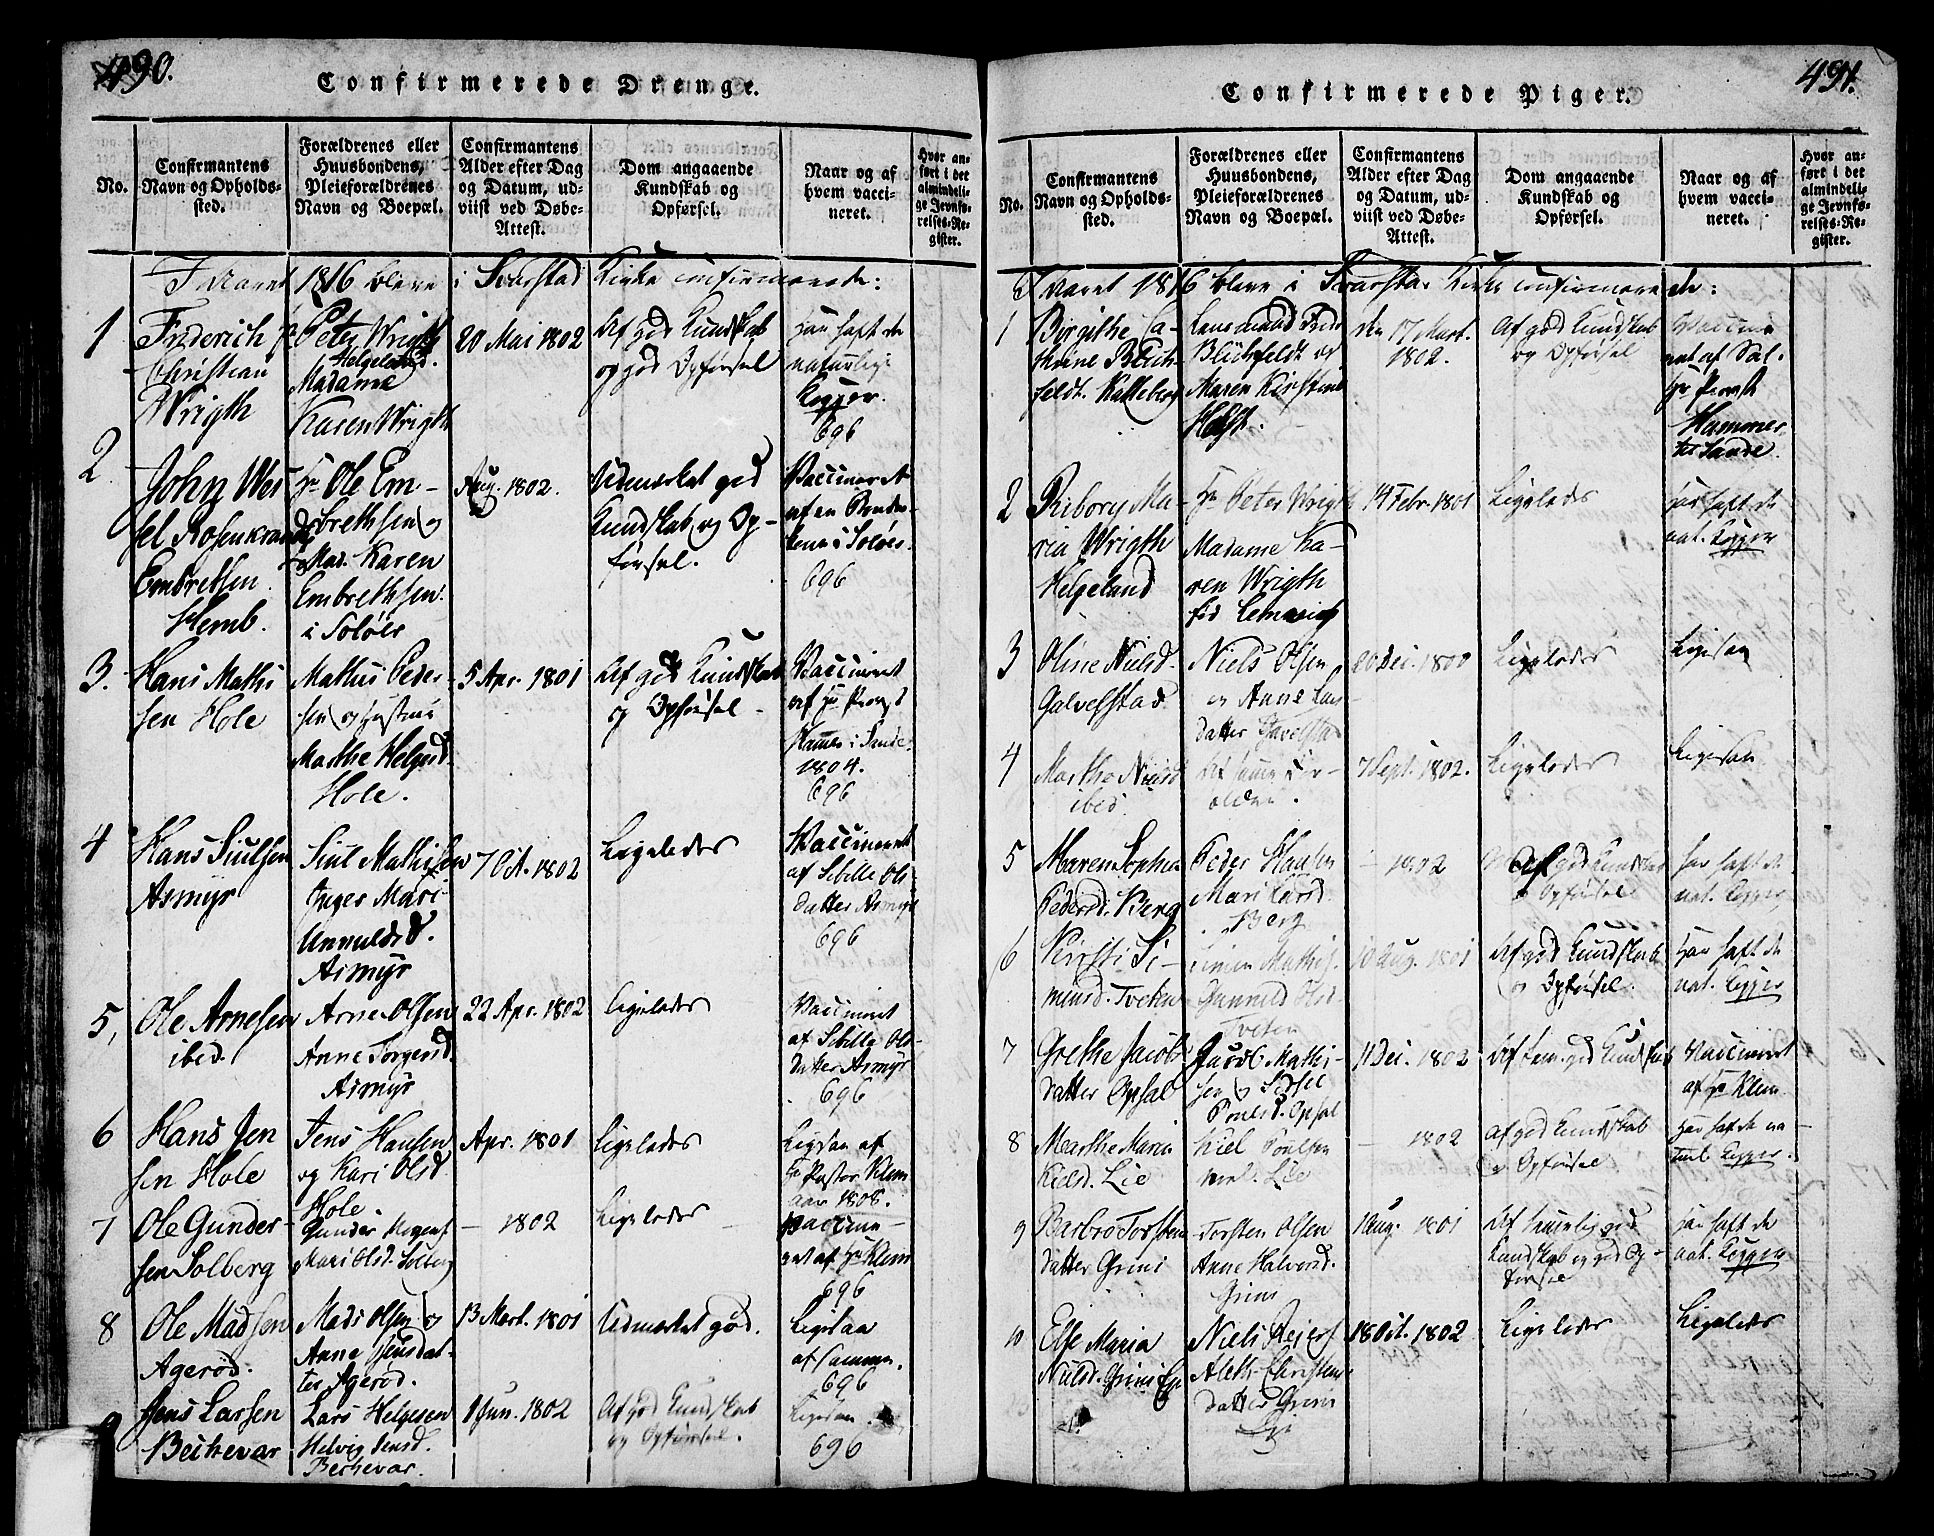 490.
Confirmerede Drenge.
No.
Confirmantens
Navn og Opholds-
sted.
Forældrenes eller
Huusbondens,
Pleieforældrenes
Navn og Boepæl.
Confirmantens
Alder efter Dag
og Datum, ud-
viist ved Døbe-
Attest.
Dom angaaende
Kundskab og
Opførsel.
Naar og af
hvem vacci-
neret.
Hvor an-
ført i det
almindeli-
ge Jevnfø-
relses-Re-
gister.
I Aaret 1816 bleve i Svarstad Kirke confirmerede:
1
Friderich
Christian
Wrigth
Peter Wrigth
Helgeland.
Madame
Karen Wrigth
20 Mai 1802
Af god Kundskab
og god Opførsel
Har haft de
naturlige
Kopper.
696
2
John Wes
sel Rosenkrands
Embretsen
Hemb.
Hr Ole Em-
brethsen og
Mad. Karen
Embrethsen
i Soløer
Aug. 1802.
Udmerket god
Kundskab og Op-
førsel.
Vaccineret
af en
i Soløer
696
3.
Hans Mathi
sen Hole
Mathis Peder-
sen og Hustrue
Marthe Helgesd.
Hole.
5 Apr. 1801
Af god Kundskab
og Opførsel
Vaccineret
af Hr Provst
Hammer i Sande
1804.
696
4
Hans Siulsen
Asmyr
Siul Mathisen
Inger Mari
Unnuldsd.
Asmyr
7 Oct. 1802
Ligeledes
Vaccineret
af Sibille Ols-
datter Asmyr
696
5,
Ole Arnesen
ibed.
Arne Olsen
Anne Torgersd.
Asmyr
22 Apr. 1802
Ligeledes
Vaccineret
af Sibille Ols-
datter Asmyr
696
6
Hans Jen
sen Hole
Jens Hansen
og Kari Olsd.
Hole
Apr. 1801
Ligeledes
Ligesaa af
Hr Pastor Klem
aar 1808.
7
Ole Gunder-
sen Solberg
Gunder Mogens.
Mari Olsd. Solberg
- 1802
Ligeledes
Vaccine-
ret af Hr Klem
696
8
Ole Madsen
Agerød.
Mads Olsen og
Anne Jensdat-
ter Agerød.
13 Mart. 1801
Udmerket god.
Ligesaa
af samme.
696
9
Jens Larsen
Bechevar
Lars Helgesen
Helvig Jensd.
Bechevar.
1 Jun. 1802
Af god Kundskab
og Opførsel.
Ligesaa.
696
491.
Confirmerede Piger.
No.
Confirmantens
Navn og Opholds-
sted.
Forældrenes eller
Huusbondens,
Pleieforældrenes
Navn og Boepæl.
Confirmantens
Alder efter Dag
og Datum, ud-
viist ved Døbe-
Attest.
Dom angaaende
Kundskab og
Opførsel.
Naar og af
hvem vacci-
neret.
Hvor an-
ført i det
almindeli-
ge Jevnfø-
relses-Re-
gister.
I Aaret 1816 bleve i Svarstad Kirke confirmerede:
1
Birgithe Ca-
thrine Blich-
feldt. Katteberg
Lensmand
Blichfeldt og
Maren Kirstine
Holst.
den 17 Mart.
1802.
Af god Kundskab
og Opførsel
Vaccine
ret af Sal.
Hr Provst
Hammer
til Sande.
2
Riborg Ma-
ria Wrigth
Helgeland
Hr Peter Wrigth
Madame Ka-
ren Wrigth
fød Lemmig
14 Febr. 1801
Ligeledes
Har haft de
nat. Kopper
3
Oline Nielsd.
Galvestad.
Niels Olsen
og Anne Lars
datter
20 Dec. 1800
Ligeledes
Ligesaa
4
Marthe Nielsd.
ibed.
De samme For-
ældre.
7 Sept. 1802.
Ligeledes
Ligesaa
5
Maren Sophia
Pedersd. Berg
Peder Hansen
Mari Larsd.
Berg
- 1802
Af god Kundskab
og Opførsel
Har haft de
nat. Kopper
6
Kirsti Si-
munsd. Tveten
Simen Mathis.
Gunnild Olsd.
Tveten
10 Aug. 1801
Af god Kundskab
og Opførsel.
Har haft de
nat. Kopper
7
Grethe Jacobs
datter Opsal
Jacob Mathi-
sen og
Poulsd. Opsal
11 Dec. 1802
Af tem. god Kundskab
Vaccineret
af Hr Klem.
8
Marthe Maria
Kields. Lie
Kiel Poulsen
Lie
- 1802
Af god Kundskab
og Opførsel
Har haft de na-
turl. Kopper.
9
Barbro Torsten
datter Grini
Torsten Olsen
Anne Halvorsd.
Grini
1 Aug. 1801
Af temmelig god
Kundskab og god Op-
førsel
Har haft de
nat. Kopper
10
Else Maria
Nielsd. Grini Eje
Niels Reiers.
Aleth Christens
datter Grini
Eje
18 Oct. 1802
Ligeledes
Ligeledes